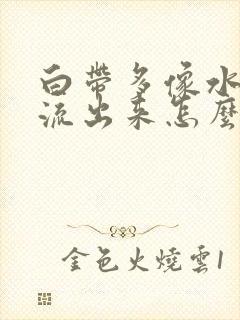 白帶多像水
流出來怎麼
金色火燒雲1